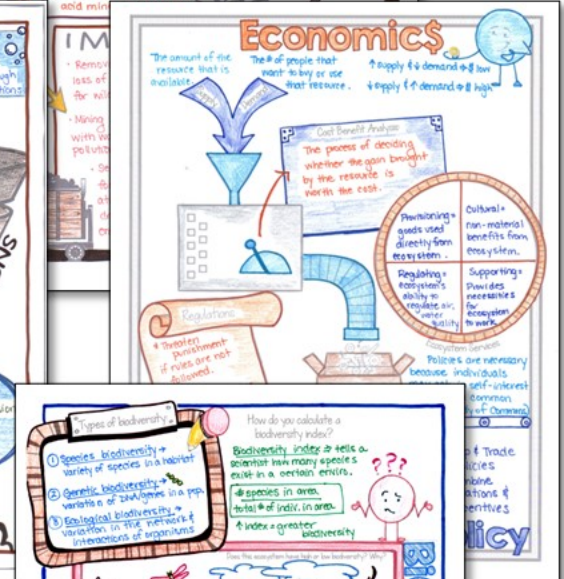 acid min
IM
• Remov
loss of
for wil
• Mining
with w
pollus
ugh
tions
Economic$
The amount of the
resource that is
available.
The # of people that
want to buy or use
that resource.
↑ supply & ↓ demand → $ low
↓ supply & ↑ demand → $ high
Supply
Demand
Cost Benefit Analysis
The process of deciding
whether the gain brought
by the resource is
worth the cost.
Provisioning =
goods used
directly from
ecosystem.
Cultural =
non-material
benefits from
ecosystem.
Regulating =
ecosystem's
ability to
regulate air,
water
quality
Supporting =
Provides
necessities
for
ecosystem
to work.
Ecosystem Services
Regulations
* Threaten
punishment
if rules are not
followed.
Policies are necessary
because individuals
self-interest
common
y of Commons)
& Trade
licies
mbine
ations &
entives
licy
Types of biodiversity
① Species biodiversity →
variety of species in a habitat
② Genetic biodiversity →
variation of DNA/genes in a pop.
③ Ecological biodiversity →
variation in the network &
interactions of organisms
How do you calculate a
biodiversity index?
Biodiversity index ⇒ tells a
scientist how many species
exist in a certain enviro.
# species in area
total # of indiv. in area
↑ index = greater
biodiversity
???
Does this ecosystem have high or low biodiversity? Why?